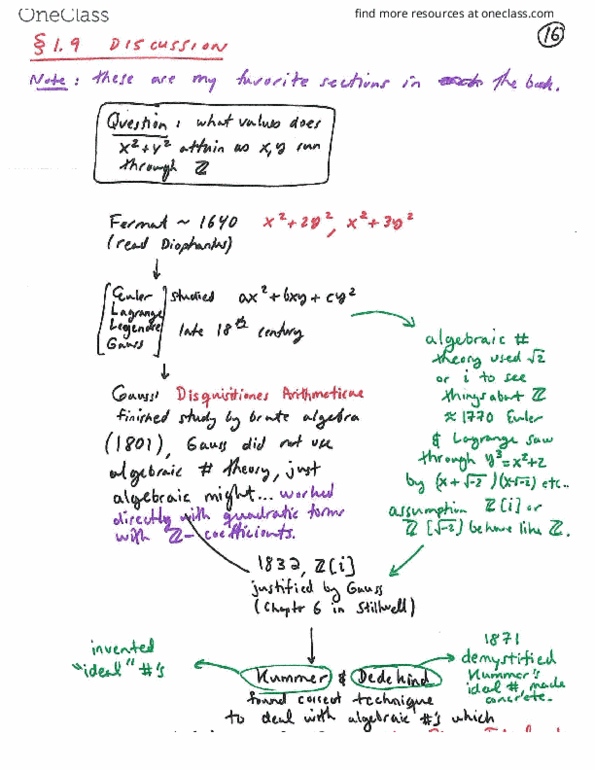 OneClass
find more resources at oneclass.com
16
§ 1.9 DISCUSSION
Note: these are my favorite sections in the book.
Question: what values does
x²+y² attain as x,y run
through ℤ
Fermat ~ 1640 x²+2y², x²+3y²
(read Diophantus)
Euler
Lagrange
Legendre
Gauss
studied ax²+bxy+cy²
late 18th century
algebraic #
theory used √2
or i to see
things about ℤ
≈ 1770 Euler
& Lagrange saw
through y³=x²+2
by (x+√-2)(x-√-2) etc..
assumption ℤ[i] or
ℤ[√-2] behave like ℤ.
Gauss' Disquisitiones Arithmeticae
finished study by brute algebra
(1801), Gauss did not use
algebraic # theory, just
algebraic might... worked
directly with quadratic forms
with ℤ-coefficients.
1832, ℤ[i]
justified by Gauss
(Chaptr 6 in Stillwell)
invented
"ideal" #'s
Kummer & Dedekind
found correct technique
to deal with algebraic #'s which
1871
demystified
Kummer's
ideal #, made
concrete.